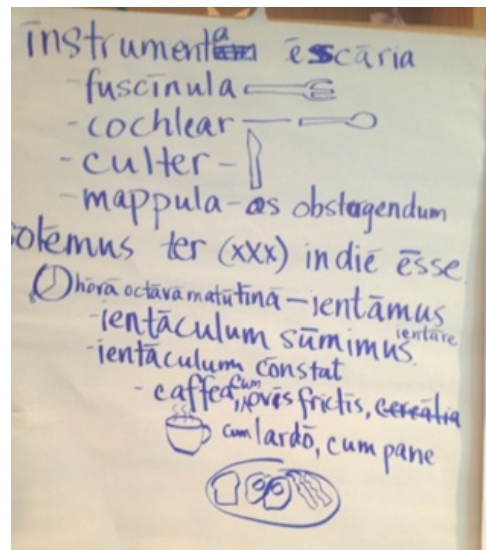 īnstrumenta ēscāria
-fuscīnula
-cochlear
-culter-
-mappula-os obstegendum
solēmus ter (xxx) in diē ēsse.
hōrā octāvā mātūtīnā-ientāmus
ientāre
-ientāculum sūmimus.
-ientāculum constat
-caffeā, cum ovīs frictīs, cereālia
cum lardō, cum pane